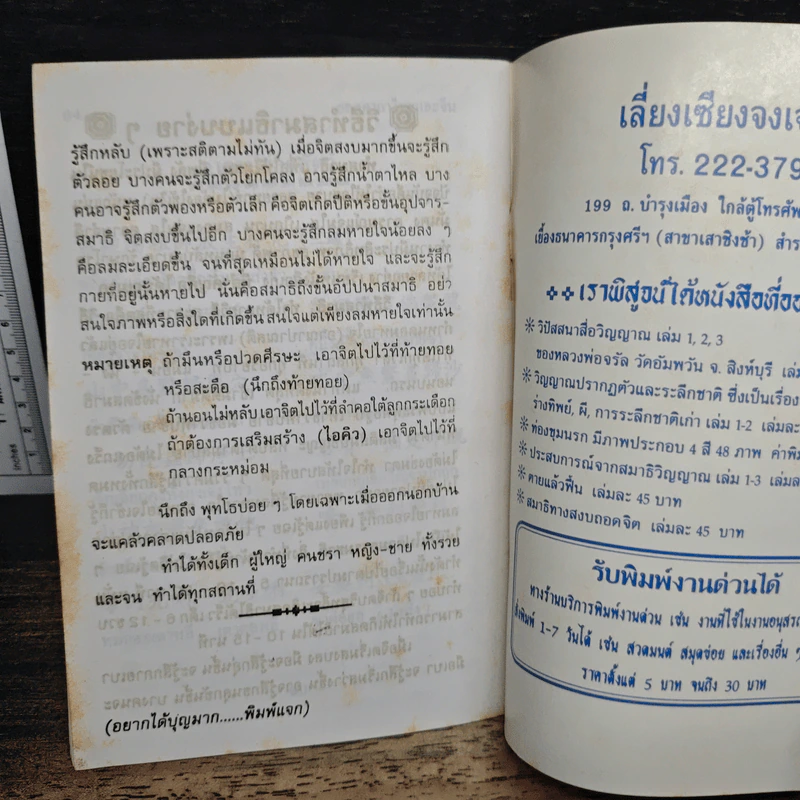 รู้สึกหลับ (เพราะสติตามไม่ทัน) เมื่อจิตสงบมากขึ้นจะรู้สึก
ตัวลอย บางคนจะรู้สึกตัวโยกโคลง อาจรู้สึกน้ำตาไหล บาง
คนอาจรู้สึกตัวพองหรือตัวเล็ก คือจิตเกิดปีติหรือขั้นอุปจาร-
สมาธิ จิตสงบขึ้นไปอีก บางคนจะรู้สึกลมหายใจน้อยลง ๆ
คือลมละเอียดขึ้น จนที่สุดเหมือนไม่ได้หายใจ และจะรู้สึก
กายที่อยู่นั้นหายไป นั่นคือสมาธิถึงขั้นอัปปนาสมาธิ อย่า
สนใจภาพหรือสิ่งใดที่เกิดขึ้น สนใจแต่เพียงลมหายใจเท่านั้น
หมายเหตุ ถ้ามึนหรือปวดศีรษะ เอาจิตไปไว้ที่ท้ายทอย
หรือสะดือ (นึกถึงท้ายทอย)
ถ้านอนไม่หลับ เอาจิตไปไว้ที่ลำคอใต้ลูกกระเดือก
ถ้าต้องการเสริมสร้าง (ไอคิว) เอาจิตไปไว้ที่
กลางกระหม่อม
นึกถึง พุทโธบ่อย ๆ โดยเฉพาะเมื่อออกนอกบ้าน
จะแคล้วคลาดปลอดภัย
ทำได้ทั้งเด็ก ผู้ใหญ่ คนชรา หญิง-ชาย ทั้งรวย
และจน ทำได้ทุกสถานที่
(อยากได้บุญมาก......พิมพ์แจก)
เลี่ยงเซียงจงเจ
โทร. 222-379
199 ถ. บำรุงเมือง ใกล้ตู้โทรศัพ
เยื้องธนาคารกรุงศรีฯ (สาขาเสาชิงช้า) สำรา
เราพิสูจน์ได้หนังสือที่ออ
※ วิปัสสนาสื่อวิญญาณ เล่ม 1, 2, 3
ของหลวงพ่อจรัล วัดอัมพวัน จ. สิงห์บุรี เล่ม
※ วิญญาณปรากฏตัวและระลึกชาติ ซึ่งเป็นเรื่อง
ร่างทิพย์, ผี, การระลึกชาติเก่า เล่ม 1-2 เล่มละ
※ ท่องขุมนรก มีภาพประกอบ 4 สี 48 ภาพ ค่าพิม
※ ประสบการณ์จากสมาธิวิญญาณ เล่ม 1-3 เล่มล
※ ตายแล้วฟื้น เล่มละ 45 บาท
※ สมาธิทางสงบถอดจิต เล่มละ 45 บาท
รับพิมพ์งานด่วนได้
ทางร้านบริการพิมพ์งานด่วน เช่น งานที่ใช้ในงานอนุสร
สั่งพิมพ์ 1-7 วันได้ เช่น สวดมนต์ สมุดข่อย และเรื่องอื่น ๆ
ราคาตั้งแต่ 5 บาท จนถึง 30 บาท